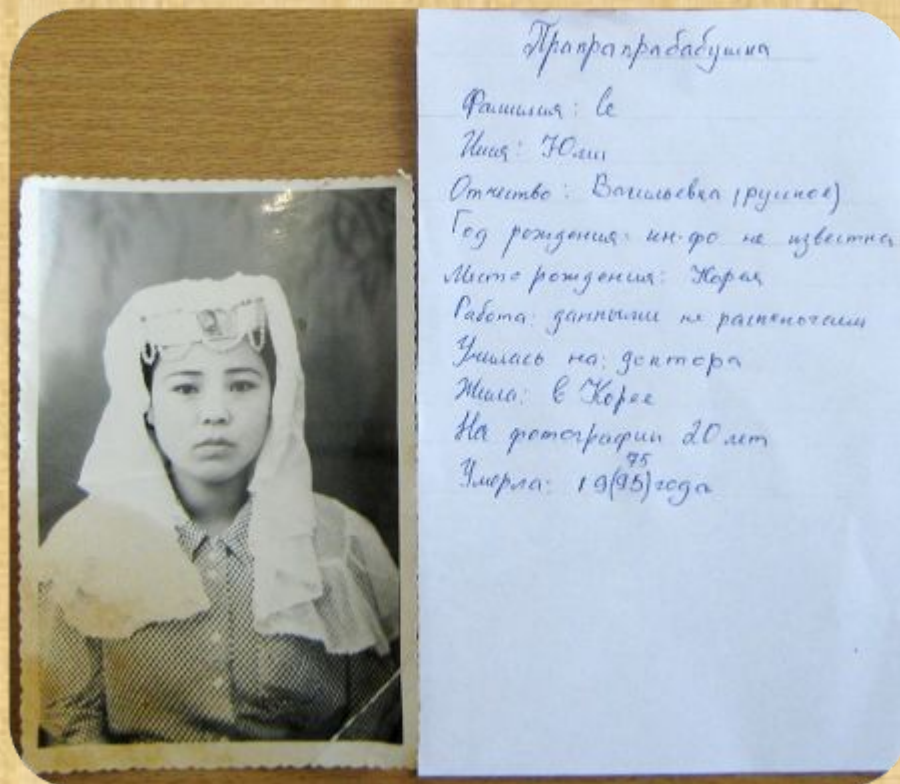 Прапрапрабабушка
Фамилия: Ве
Имя: Юлия
Отчество: Васильевна (русское)
Год рождения: ин-фо не известна
Место рождения: Корея
Работа: данными не распологаем
Училась на: доктора
Жила: в Корее
На фотографии 20 лет
75
Умерла: 19(95) года